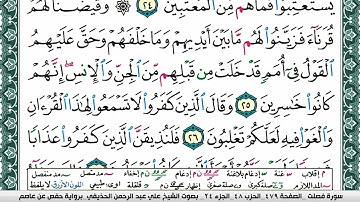 يَسْتَعْتِبُوا۟ فَمَا هُم مِّنَ ٱلْمُعْتَبِينَ ٢٤ وَقَيَّضْنَا لَهُمْ
قُرَنَآءَ فَزَيَّنُوا۟ لَهُم مَّا بَيْنَ أَيْدِيهِمْ وَمَا خَلْفَهُمْ وَحَقَّ عَلَيْهِمُ
ٱلْقَوْلُ فِىٓ أُمَمٍ قَدْ خَلَتْ مِن قَبْلِهِم مِّنَ ٱلْجِنِّ وَٱلْإِنسِ إِنَّهُمْ
كَانُوا۟ خَٰسِرِينَ ٢٥ وَقَالَ ٱلَّذِينَ كَفَرُوا۟ لَا تَسْمَعُوا۟ لِهَٰذَا ٱلْقُرْءَانِ
وَٱلْغَوْا۟ فِيهِ لَعَلَّكُمْ تَغْلِبُونَ ٢٦ فَلَنُذِيقَنَّ ٱلَّذِينَ كَفَرُوا۟ عَذَابًا
سورة فصلت - الصفحة ٤٧٩ - الحزب ٤٨ - الجزء ٢٤ - بصوت الشيخ علي عبد الرحمن الحذيفي - برواية حفص عن عاصم